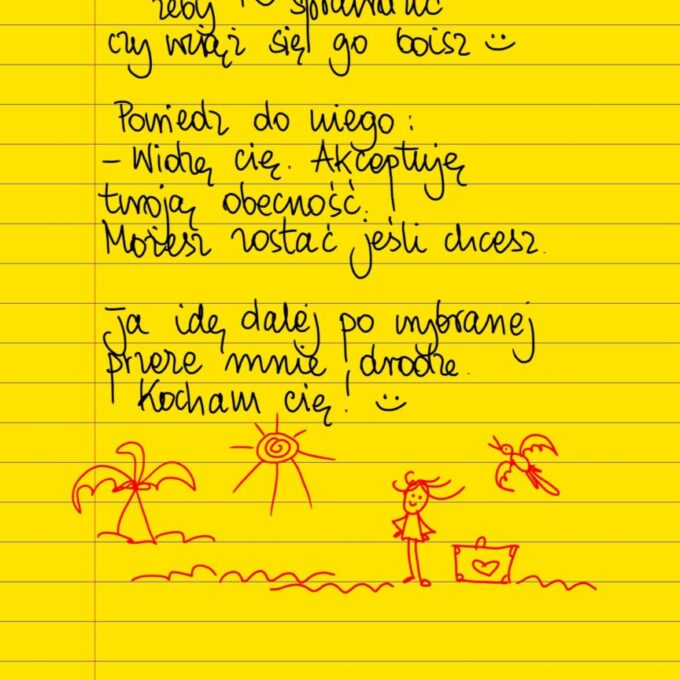 żeby to sprawdzić
czy wciąż się go boisz
Powiedz do niego:
– Widzę cię. Akceptuję
twoją obecność.
Możesz zostać jeśli chcesz.
Ja idę dalej po wybranej
przeze mnie drodze.
Kocham cię!